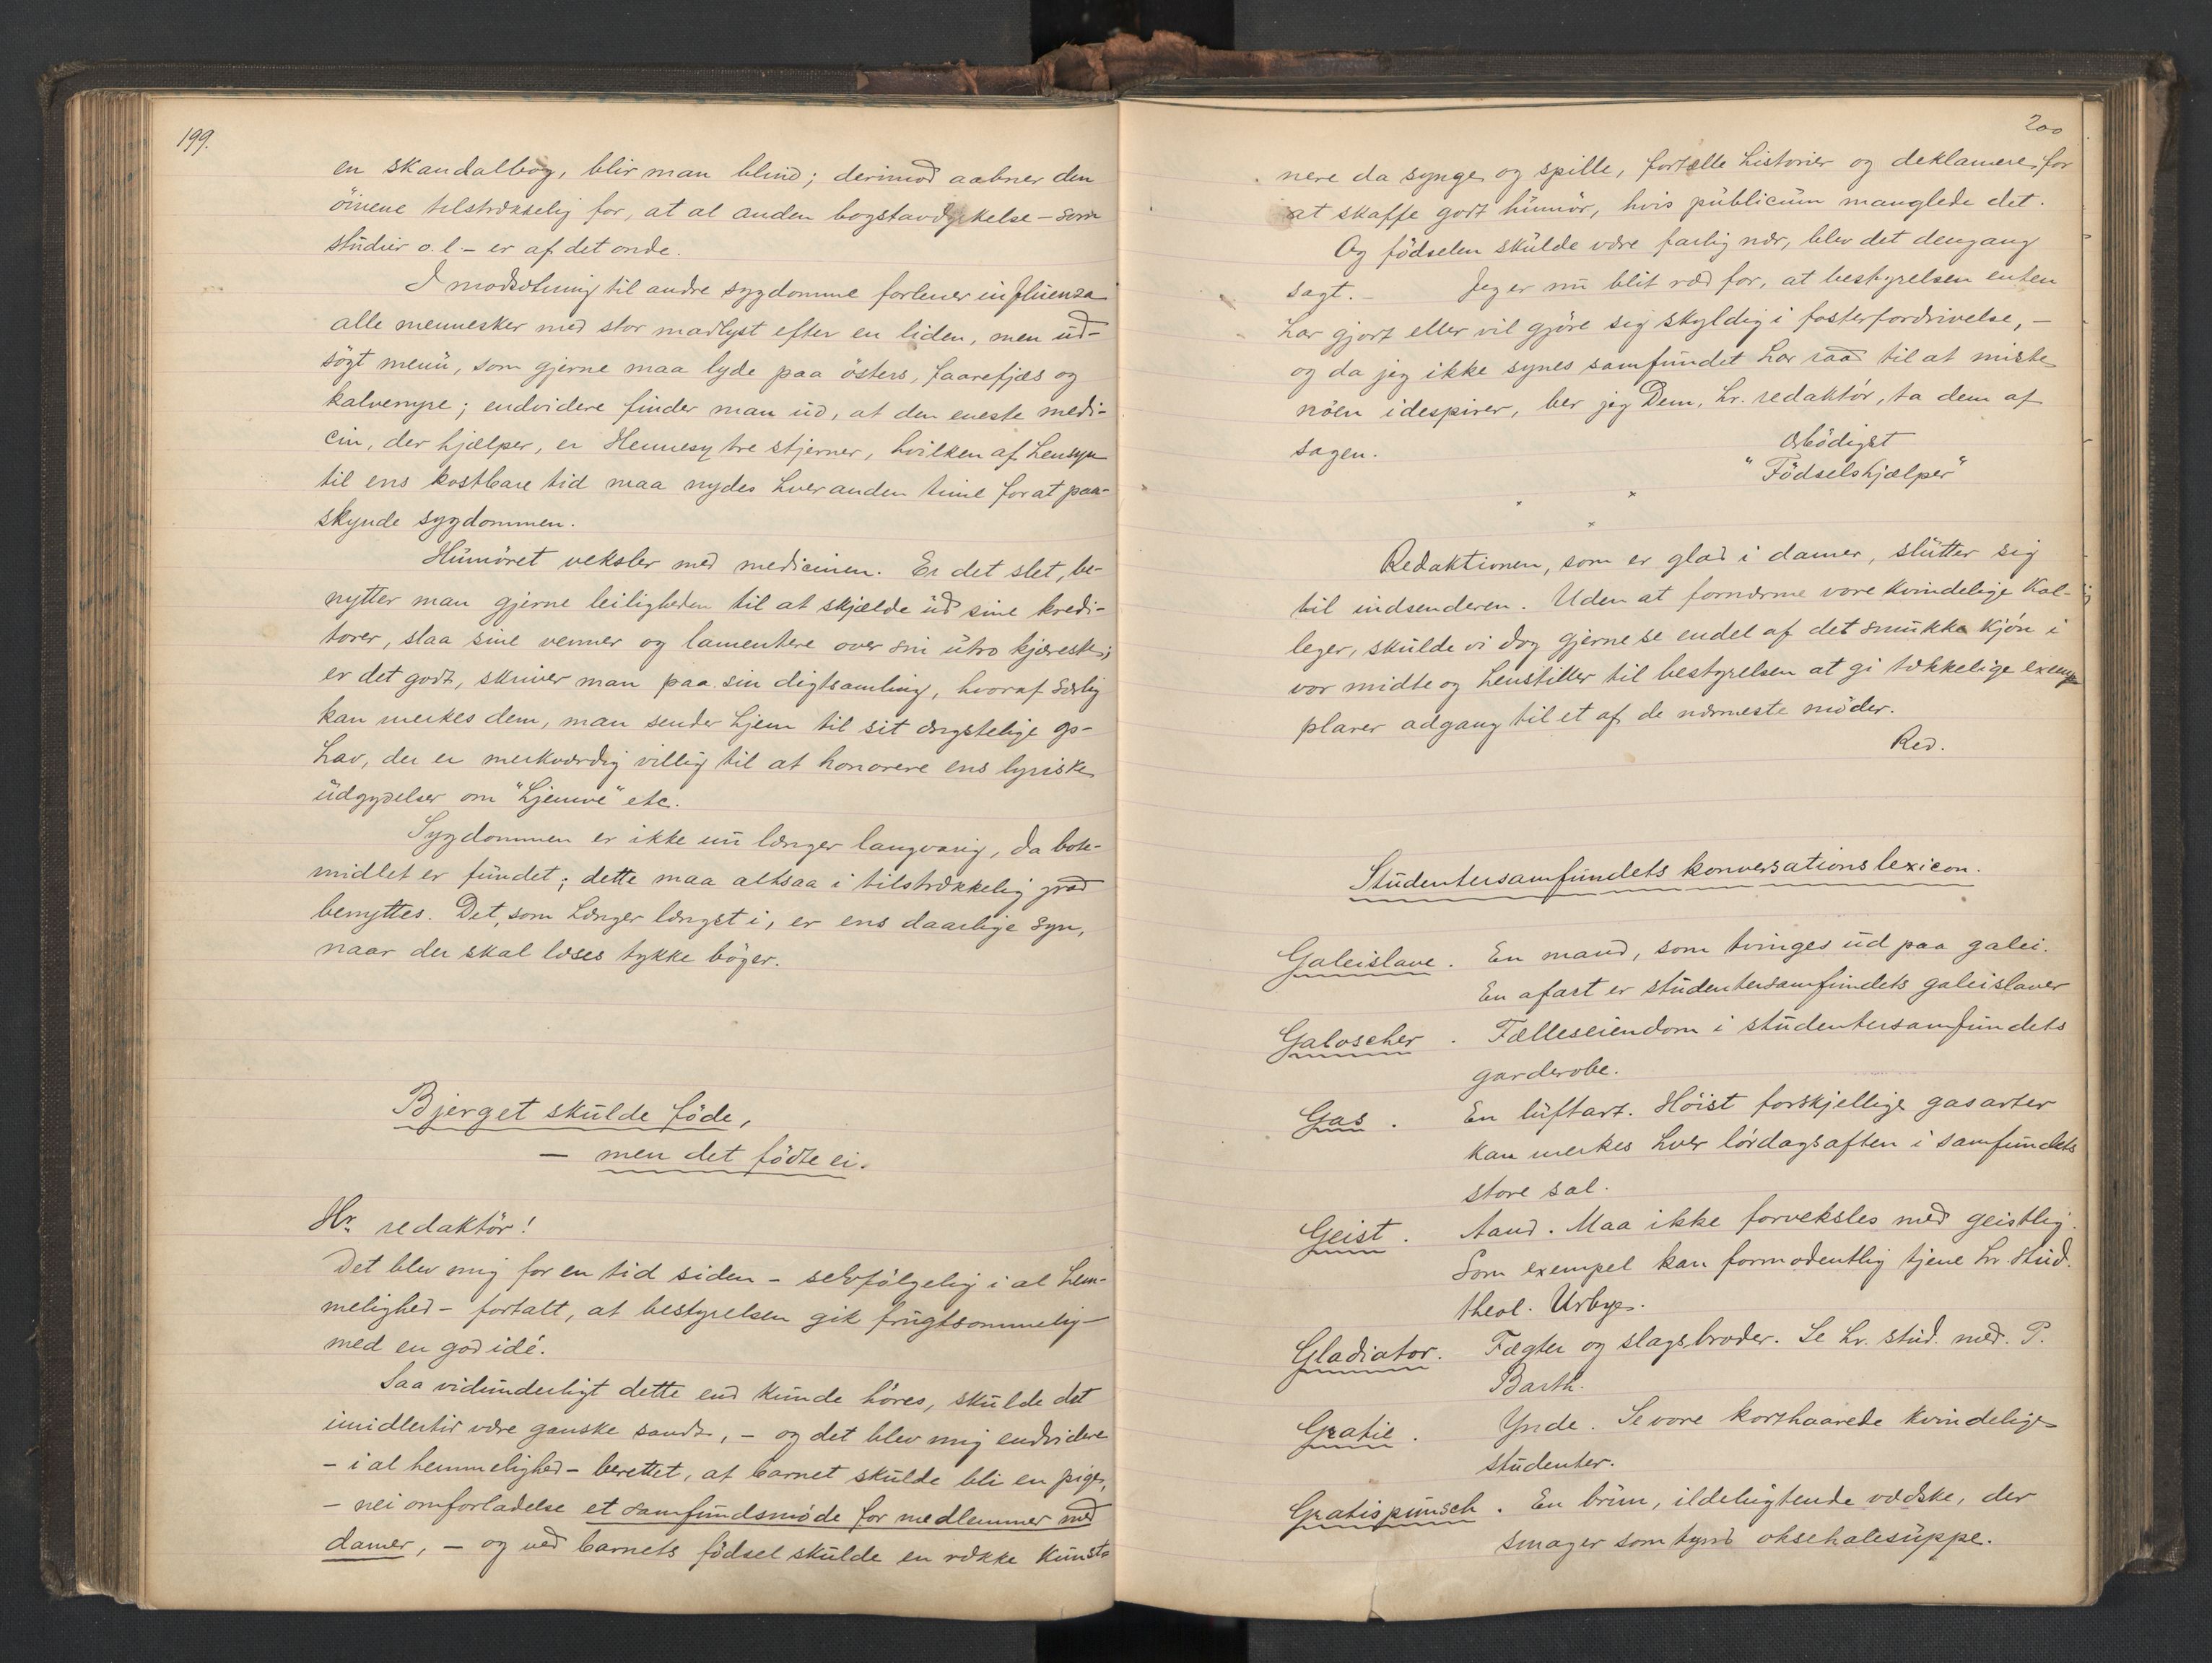 199.
en skandalbog, blir man blind; derimod aabner den
öinene tilstrækkelig for, at al anden bogstavdyrkelse – som
studier o. l. – er af det onde.
I modsætning til andre sygdomme forlener influenza
alle mennesker med stor madlyst efter en liden, men ud-
søgt menu, som gjerne maa lyde paa östers, faarefjæs og
kalvenyre; endvidere finder man ud, at den eneste medi-
cin, der hjælper, er Hennesy tre stjerner, hvilken af hensyn
til ens kostbare tid maa nydes hver anden time for at paa-
skynde sygdommen.
Humöret veksler med medicinen. Er det slet, be-
nytter man gjerne leiligheden til at skjælde ud sine kredi-
torer, slaa sine venner og lamentere over sin utro kjæreste;
er det godt, skriver man paa sin digtsamling, hvoraf særlig
kan merkes dem, man sender hjem til sit ængstelige op-
hav, der er merkværdig villig til at honorere ens lyriske
udgydelser om "hjemve" etc.
Sygdommen er ikke nu længer langvarig, da bote-
midlet er fundet; dette maa altsaa i tilstrækkelig grad
benyttes. Det, som hænger længst i, er ens daarlige syn,
naar der skal læses tykke böger.
Bjerget skulde föde,
– men det födte ei.
Hr. redaktör!
Det blev mig for en tid siden – selvfölgelig i al hem-
melighed – fortalt, at bestyrelsen gik frugtsommelig
med en god idé.
Saa vidunderligt dette end kunde höres, skulde det
imidlertid være ganske sandt, – og det blev mig endvidere
– i al hemmelighed – berettet, at barnet skulde bli en pige,
– nei om forladelse et samfundsmöde for medlemmer med
damer, – og ved barnets födsel skulde en række kunst-
200
nere da synge og spille, fortælle historier og deklamere for
at skaffe godt humör, hvis publicum manglede det.
Og födselen skulde være farlig nær, blev det dengang
sagt. – Jeg er nu blit ræd for, at bestyrelsen enten
har gjort eller vil gjöre sig skyldig i fosterfordrivelse, –
og da jeg ikke synes samfundet har raad til at miste
nöen idespirer, ber jeg Dem, hr. redaktör, ta dem af
sagen.
Ærbödigst
"Födselshjælper"
Redaktionen, som er glad i damer, slutter sig
til indsenderen. Uden at fornærme vore kvindelige kol-
leger, skulde vi dog gjerne se endel af det smukke kjön i
vor midte og henstiller til bestyrelsen at gi tækkelige exem-
plarer adgang til et af de nærmeste möder.
Red.
Studentersamfundets konversationslexicon.
Galeislave. En mand, som tvinges ud paa galei.
En afart er studentersamfundets galeislaver
Galoscher. Fælleseiendom i studentersamfundets
garderobe.
Gas. En luftart. Höist forskjellige gasarter
kan merkes hver lördagsaften i samfundets
store sal.
Geist. Aand. Maa ikke forveksles med geistlig.
Som exempel kan formodentlig tjene hr. stud.
theol. Urbye.
Gladiator. Fægter og slagsbroder. Se hr. stud. med. P.
Barth.
Gratie. Ynde. Se vore korthaarede kvindelige
studenter.
Gratispunsch. En brun, ildelugtende vædske, der
smager som tynd oksehalesuppe.